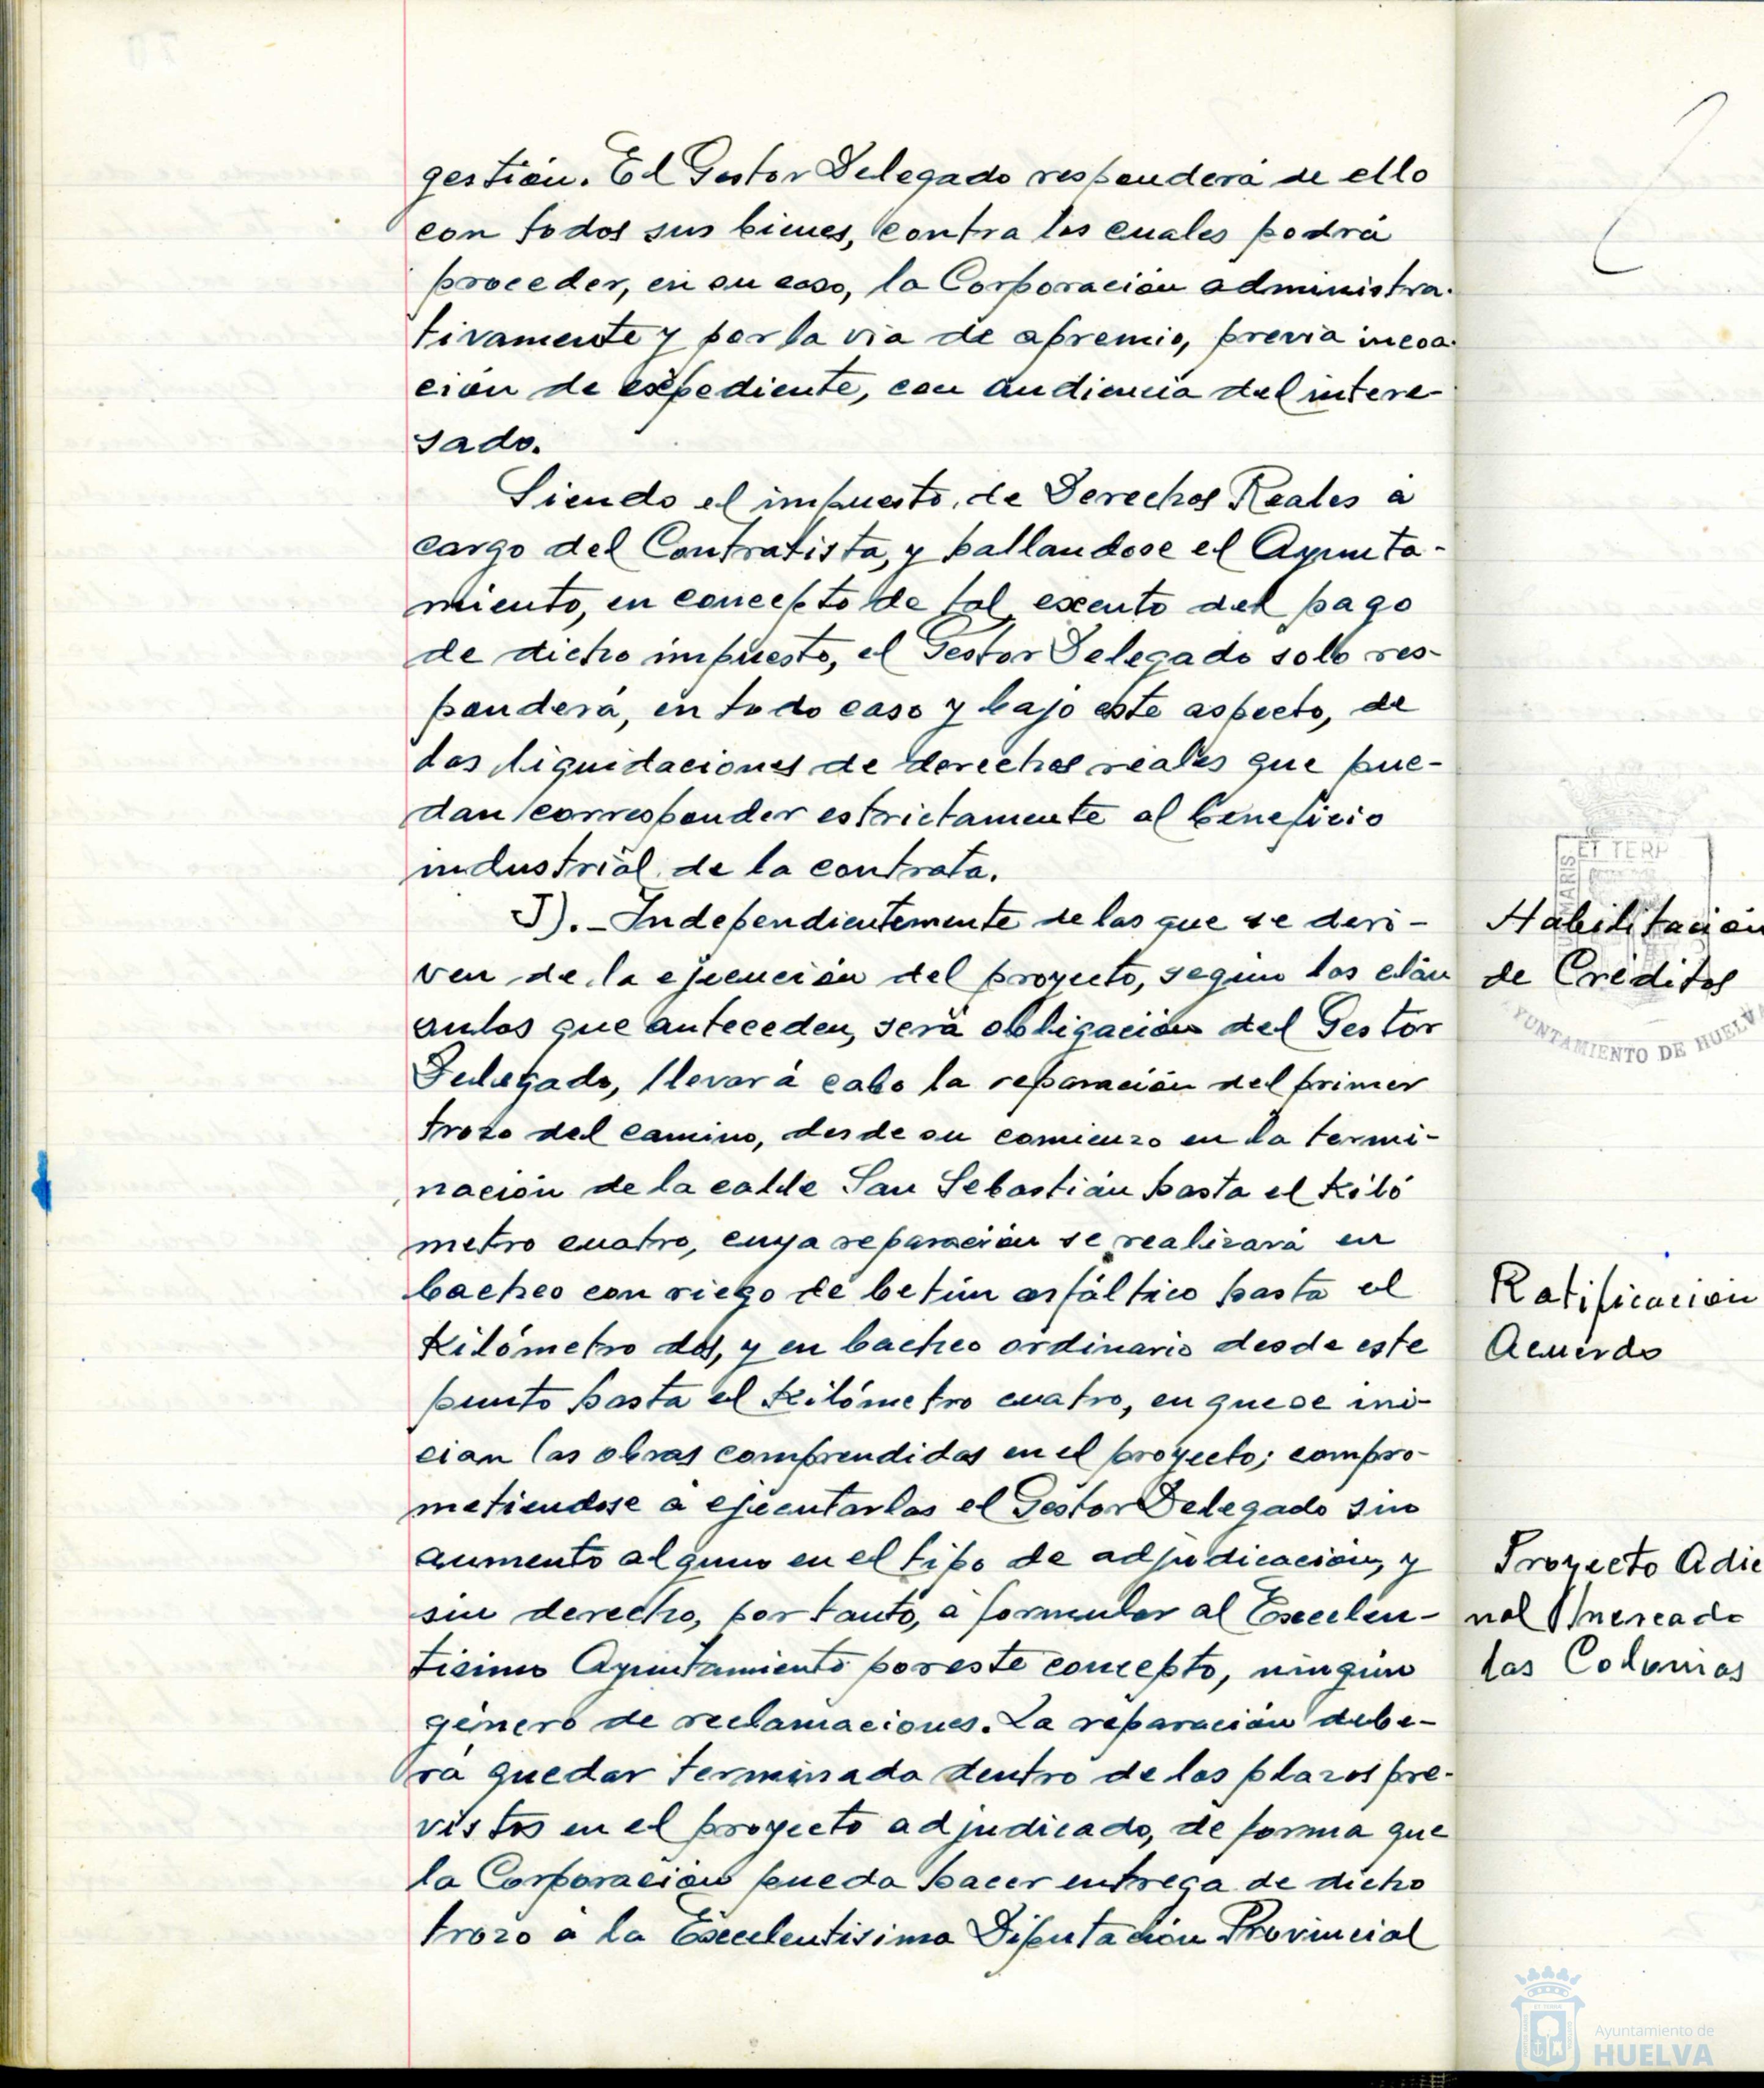 gestión. El Gestor Delegado responderá de ello
con todos sus bienes, contra los cuales podrá
proceder, en su caso, la Corporación administra-
tivamente y por la via de apremio, previa incoa-
ción de expediente, con audiencia del intere-
sado.
Siendo el impuesto de Derechos Reales a
cargo del Contratista, y hallandose el Ayunta-
miento, en concepto de tal, exento del pago
de dicho impuesto, el Gestor Delegado solo res-
ponderá, en todo caso y bajo este aspecto, de
las liquidaciones de derechos reales que pue-
dan corresponder estrictamente al beneficio
industrial de la contrata.
J).- Independientemente de las que se deri-
ven de la ejecución del proyecto, segun las cláu
sulas que anteceden, será obligación del Gestor
Delegado, llevar á cabo la reparación del primer
trozo del camino, desde su comienzo en la termi-
nación de la calle San Sebastián hasta el kiló
metro cuatro, cuya reparación se realizará en
bacheo con riego de betún asfáltico hasta el
kilómetro dos, y en bacheo ordinario desde este
punto hasta el kilómetro cuatro, en que se ini-
cian las obras comprendidas en el proyecto; compro-
metiendose á ejecutarlas el Gestor Delegado sin
aumento alguno en el tipo de adjudicación, y
sin derecho, por tanto, á formular al Excelen-
tisimo Ayuntamiento por este concepto, ningún
género de reclamaciones. La reparación debe-
rá quedar terminada dentro de los plazos pre-
vistos en el proyecto adjudicado, de forma que
la Corporación pueda hacer entrega de dicho
trozo a la Excelentisima Diputación Provincial
Habilitación
de Créditos
ET TERR
MARIS
YUNTAMIENTO DE HUELVA
Ratificación
Acuerdo
Proyecto Adic
nal Mercado
las Colonias
Ayuntamiento de
HUELVA